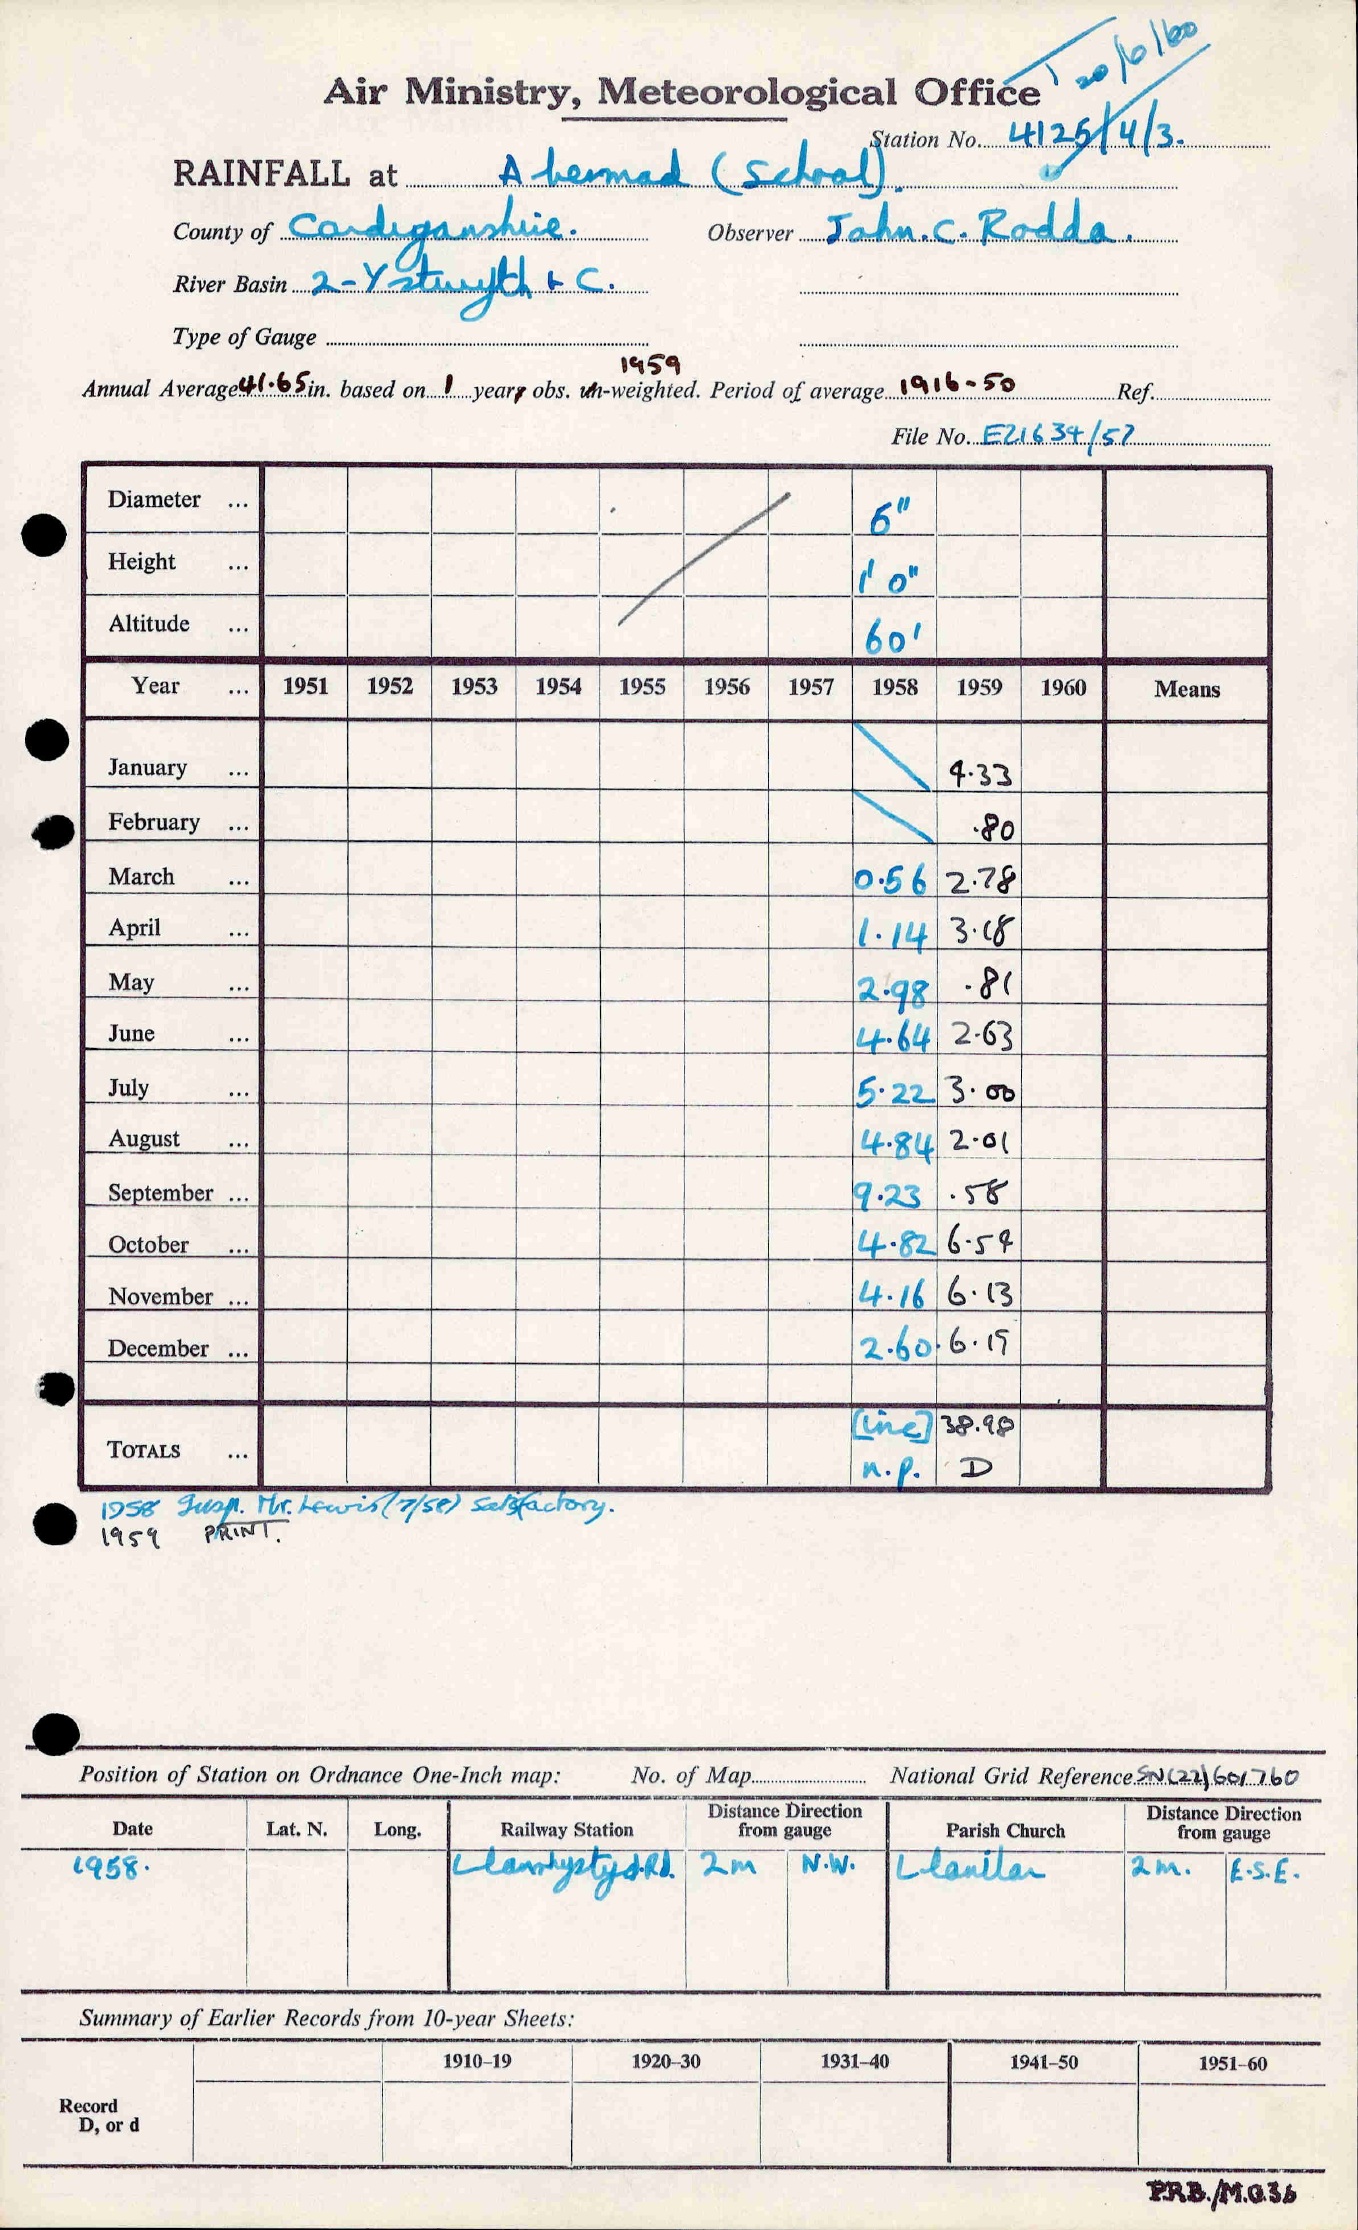 20/6/60
Air Ministry, Meteorological Office
Station No. 4125/4/3.
RAINFALL at Abermad (School).
County of Cardiganshire. Observer John. C. Rodda.
River Basin 2-Ystwyth & C.
Type of Gauge
1959
Annual Average 41.65 in. based on 1 years obs. un-weighted. Period of average 1916-50 Ref.
File No. E21634/57
Diameter ... 5"
Height ... 1' 0"
Altitude ... 60'
Year ... 1951 1952 1953 1954 1955 1956 1957 1958 1959 1960 Means
January ... 4.33
February ... .80
March ... 0.56 2.78
April ... 1.14 3.18
May ... 2.98 .81
June ... 4.64 2.63
July ... 5.22 3.00
August ... 4.84 2.01
September ... 9.23 .58
October ... 4.82 6.54
November ... 4.16 6.13
December ... 2.60 6.19
TOTALS ... [inc] 38.98
n.p. D
1958 Insp. Mr. Lewis (7/58) satisfactory.
1959 PRINT.
Position of Station on Ordnance One-Inch map: No. of Map National Grid Reference SN(22)601760
Date Lat. N. Long. Railway Station Distance Direction from gauge Parish Church Distance Direction from gauge
1958. Llanrhystyd.Rd. 2m N.W. Llanilar 2m. E.S.E.
Summary of Earlier Records from 10-year Sheets:
1910–19 1920–30 1931–40 1941–50 1951–60
Record
D, or d
P.R.B./M.O.36